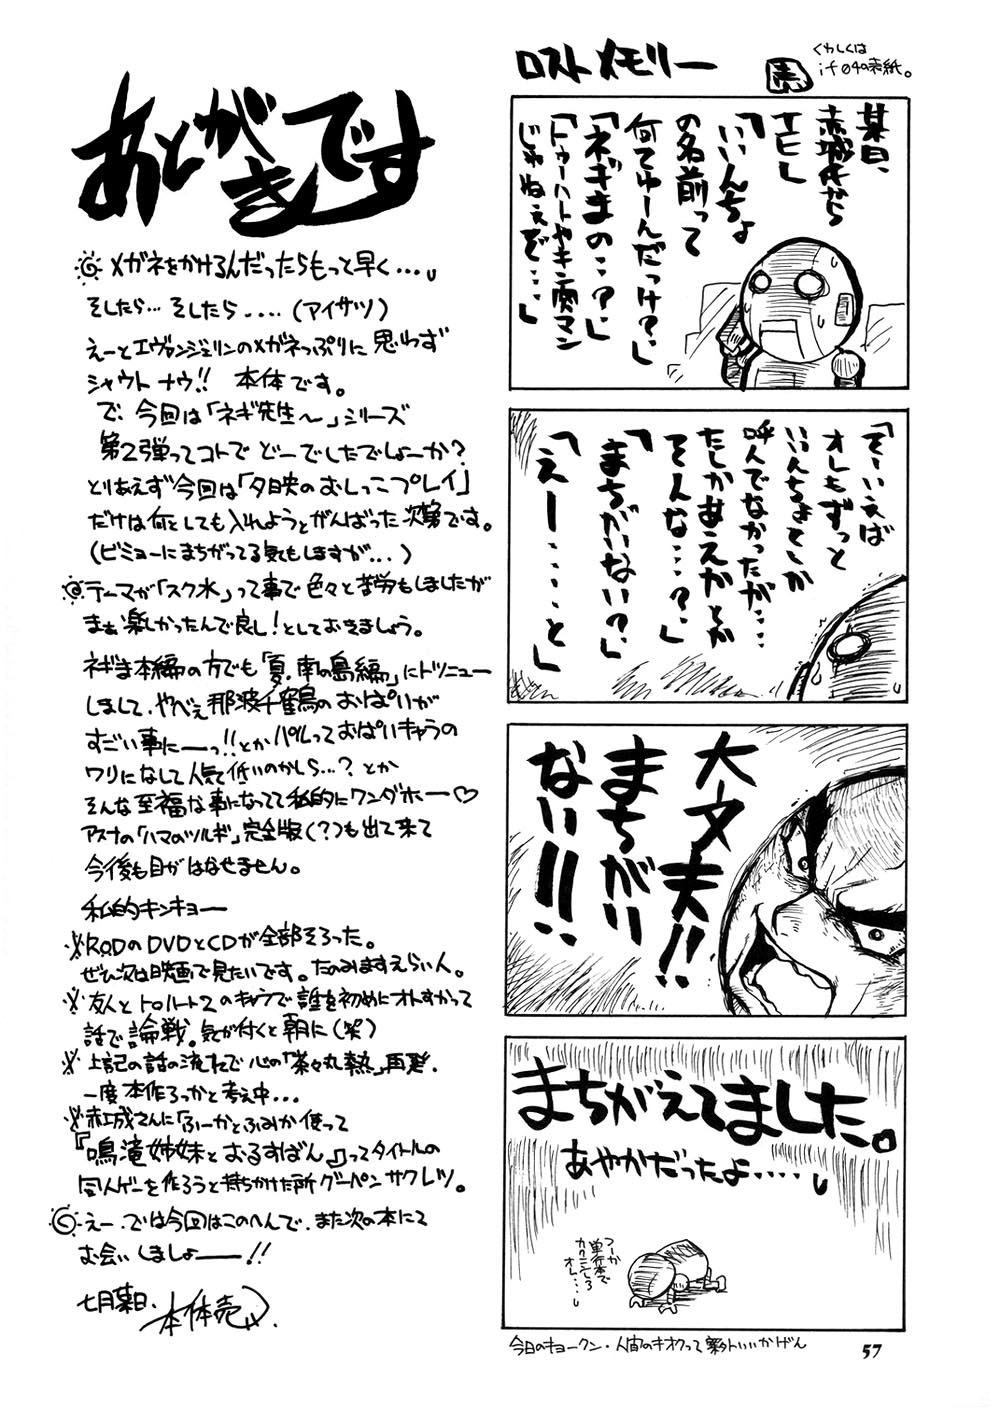 ロストメモリー
くわしくは
if04の表紙。
某日、
赤城氏から
TELし
「いいんちょ
の名前って
何てゆーんだっけ?」
「ネギまの‥?」
「トゥーハートやキン肉マン
じゃねぇぞ‥‥」
「そーいえば
オレもずっと
いいんちょとしか
呼んでなかったが‥‥
たしかあえかとか
そんな‥‥?」
「まちがいない?」
「えー‥‥‥と」
大丈夫!!
まちがい
ない!!
まちがえてました。
あやかだったよ‥‥‥
つーか
単行本で
カクニンしろ
オレ‥‥
今日のキョークン・人間のキオクって案外いいかげん
57
あとがきです
メガネをかけるんだったらもっと早く‥‥
そしたら‥‥そしたら‥‥‥(アイサツ)
えーとエヴァンジェリンのメガネっぷりに思わず
シャウトナウ!! 本体です。
で、今回は「ネギ先生〜」シリーズ
第2弾ってコトでどーでしたでしょーか?
とりあえず今回は「夕映のおしっこプレイ」
だけは何としても入れようとがんばった次第です。
(ビミョーにまちがってる気もしますが‥‥)
テーマが「スク水」って事で色々と苦労もしましたが
まぁ楽しかったんで良し!としておきましょう。
ネギま本編の方でも「夏、南の島編」にトツニュー
しまして、やべぇ那波千鶴のおぱいが
すごい事にーーっ!!とかパルっておぱいキャラの
ワリになして人気低いのかしら‥‥?とか
そんな至福な事になってて私的にワンダホー♡
アスナの「ハマのツルギ」完全版(?)も出て来て
今後も目がはなせません。
私的キンキョー
RODのDVDとCDが全部そろった。
ぜひ次は映画で見たいです。たのみますえらい人。
友人とトゥハート2のキャラで誰を初めにオトすかって
話で論戦。気が付くと朝に(笑)
上記の話の流れで心の「茶々丸熱」再発。
一度本作ろっかと考え中‥‥
赤城さんに「ふーかとふみか使って
『鳴滝姉妹とおるすばん』ってタイトルの
同人ゲーを作ろうと持ちかけた所グーパンサクレツ。
えー、では今回はこのへんで、また次の本にて
お会いしましょーー!!
七月某日、本体売